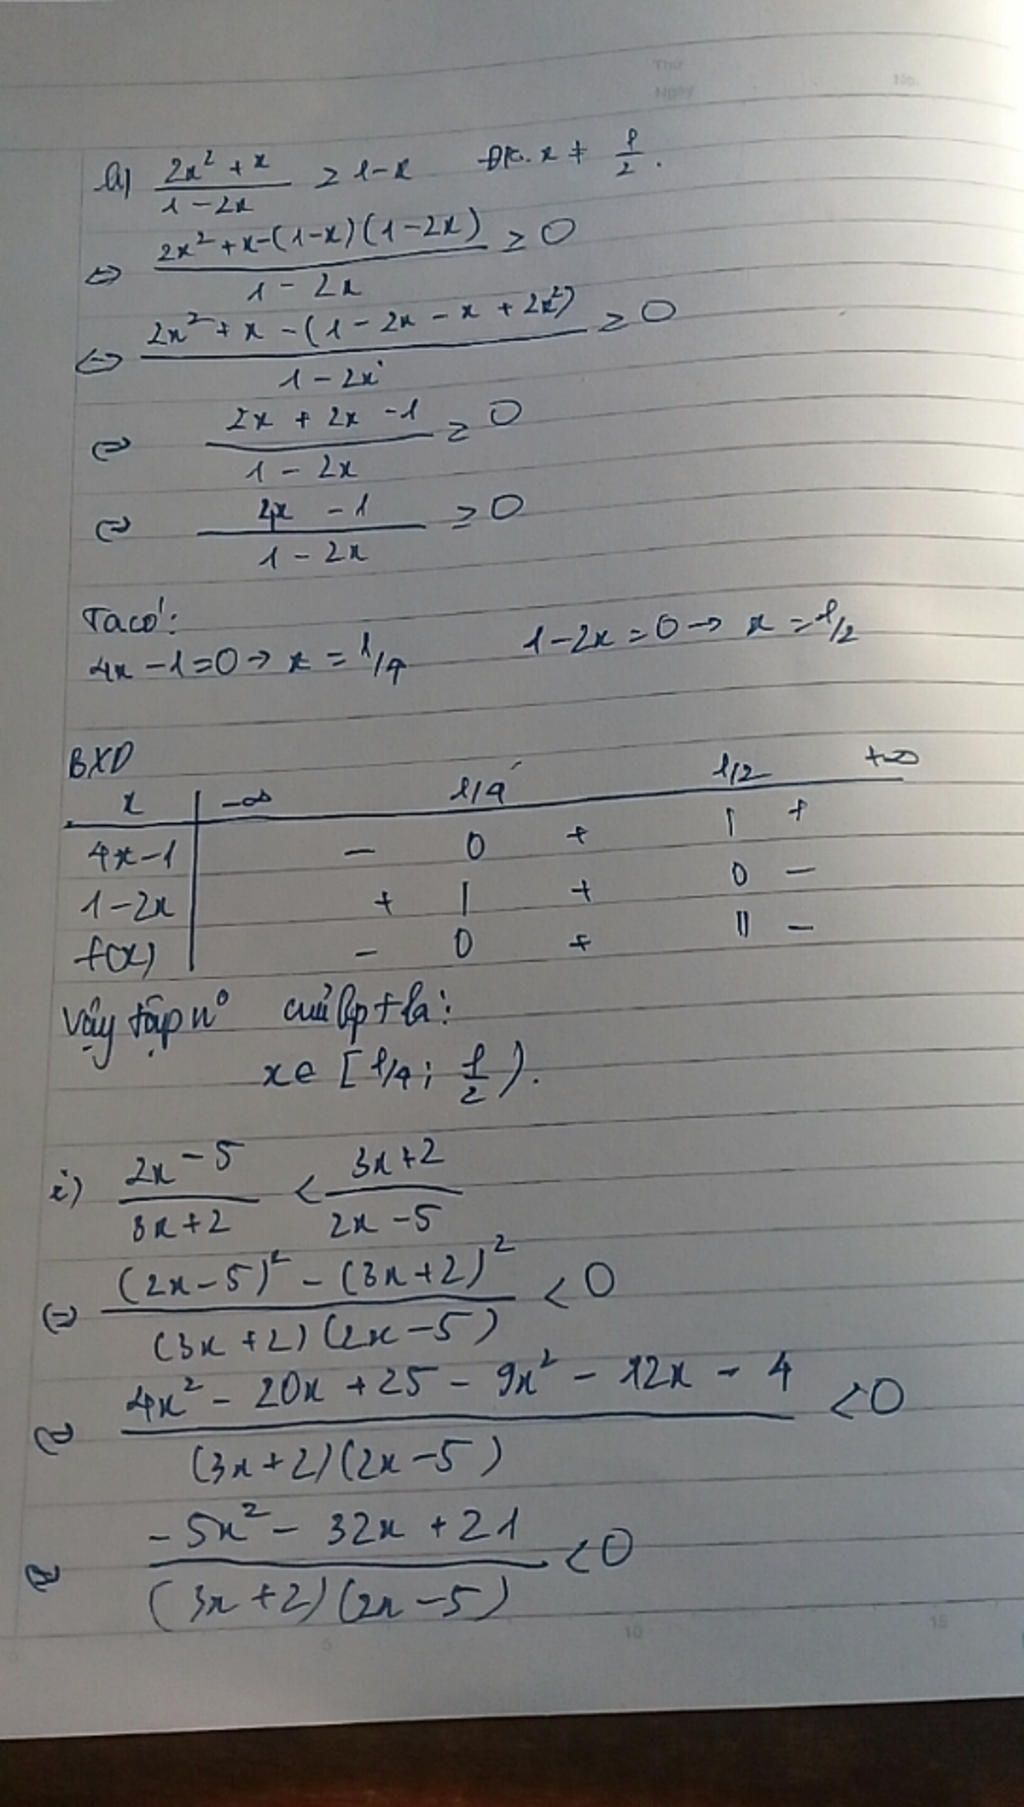 Thứ
Ngày No.
h) \frac{2x^2 + x}{1 - 2x} ≥ 1 - x ĐK: x ≠ \frac{1}{2}.
⇔ \frac{2x^2 + x - (1 - x)(1 - 2x)}{1 - 2x} ≥ 0
⇔ \frac{2x^2 + x - (1 - 2x - x + 2x^2)}{1 - 2x} ≥ 0
⇔ \frac{2x + 2x - 1}{1 - 2x} ≥ 0
⇔ \frac{4x - 1}{1 - 2x} ≥ 0
Ta có:
4x - 1 = 0 → x = 1/4 1 - 2x = 0 → x = 1/2
BXD
x | -∞ 1/4 1/2 +∞
4x - 1 | - 0 + | +
1 - 2x | + | + 0 -
f(x) | - 0 + || -
Vậy tập n° của bpt là:
x ∈ [1/4; \frac{1}{2}).
i) \frac{2x - 5}{3x + 2} < \frac{3x + 2}{2x - 5}
⇔ \frac{(2x - 5)^2 - (3x + 2)^2}{(3x + 2)(2x - 5)} < 0
⇔ \frac{4x^2 - 20x + 25 - 9x^2 - 12x - 4}{(3x + 2)(2x - 5)} < 0
⇔ \frac{-5x^2 - 32x + 21}{(3x + 2)(2x - 5)} < 0
0 5 10 15